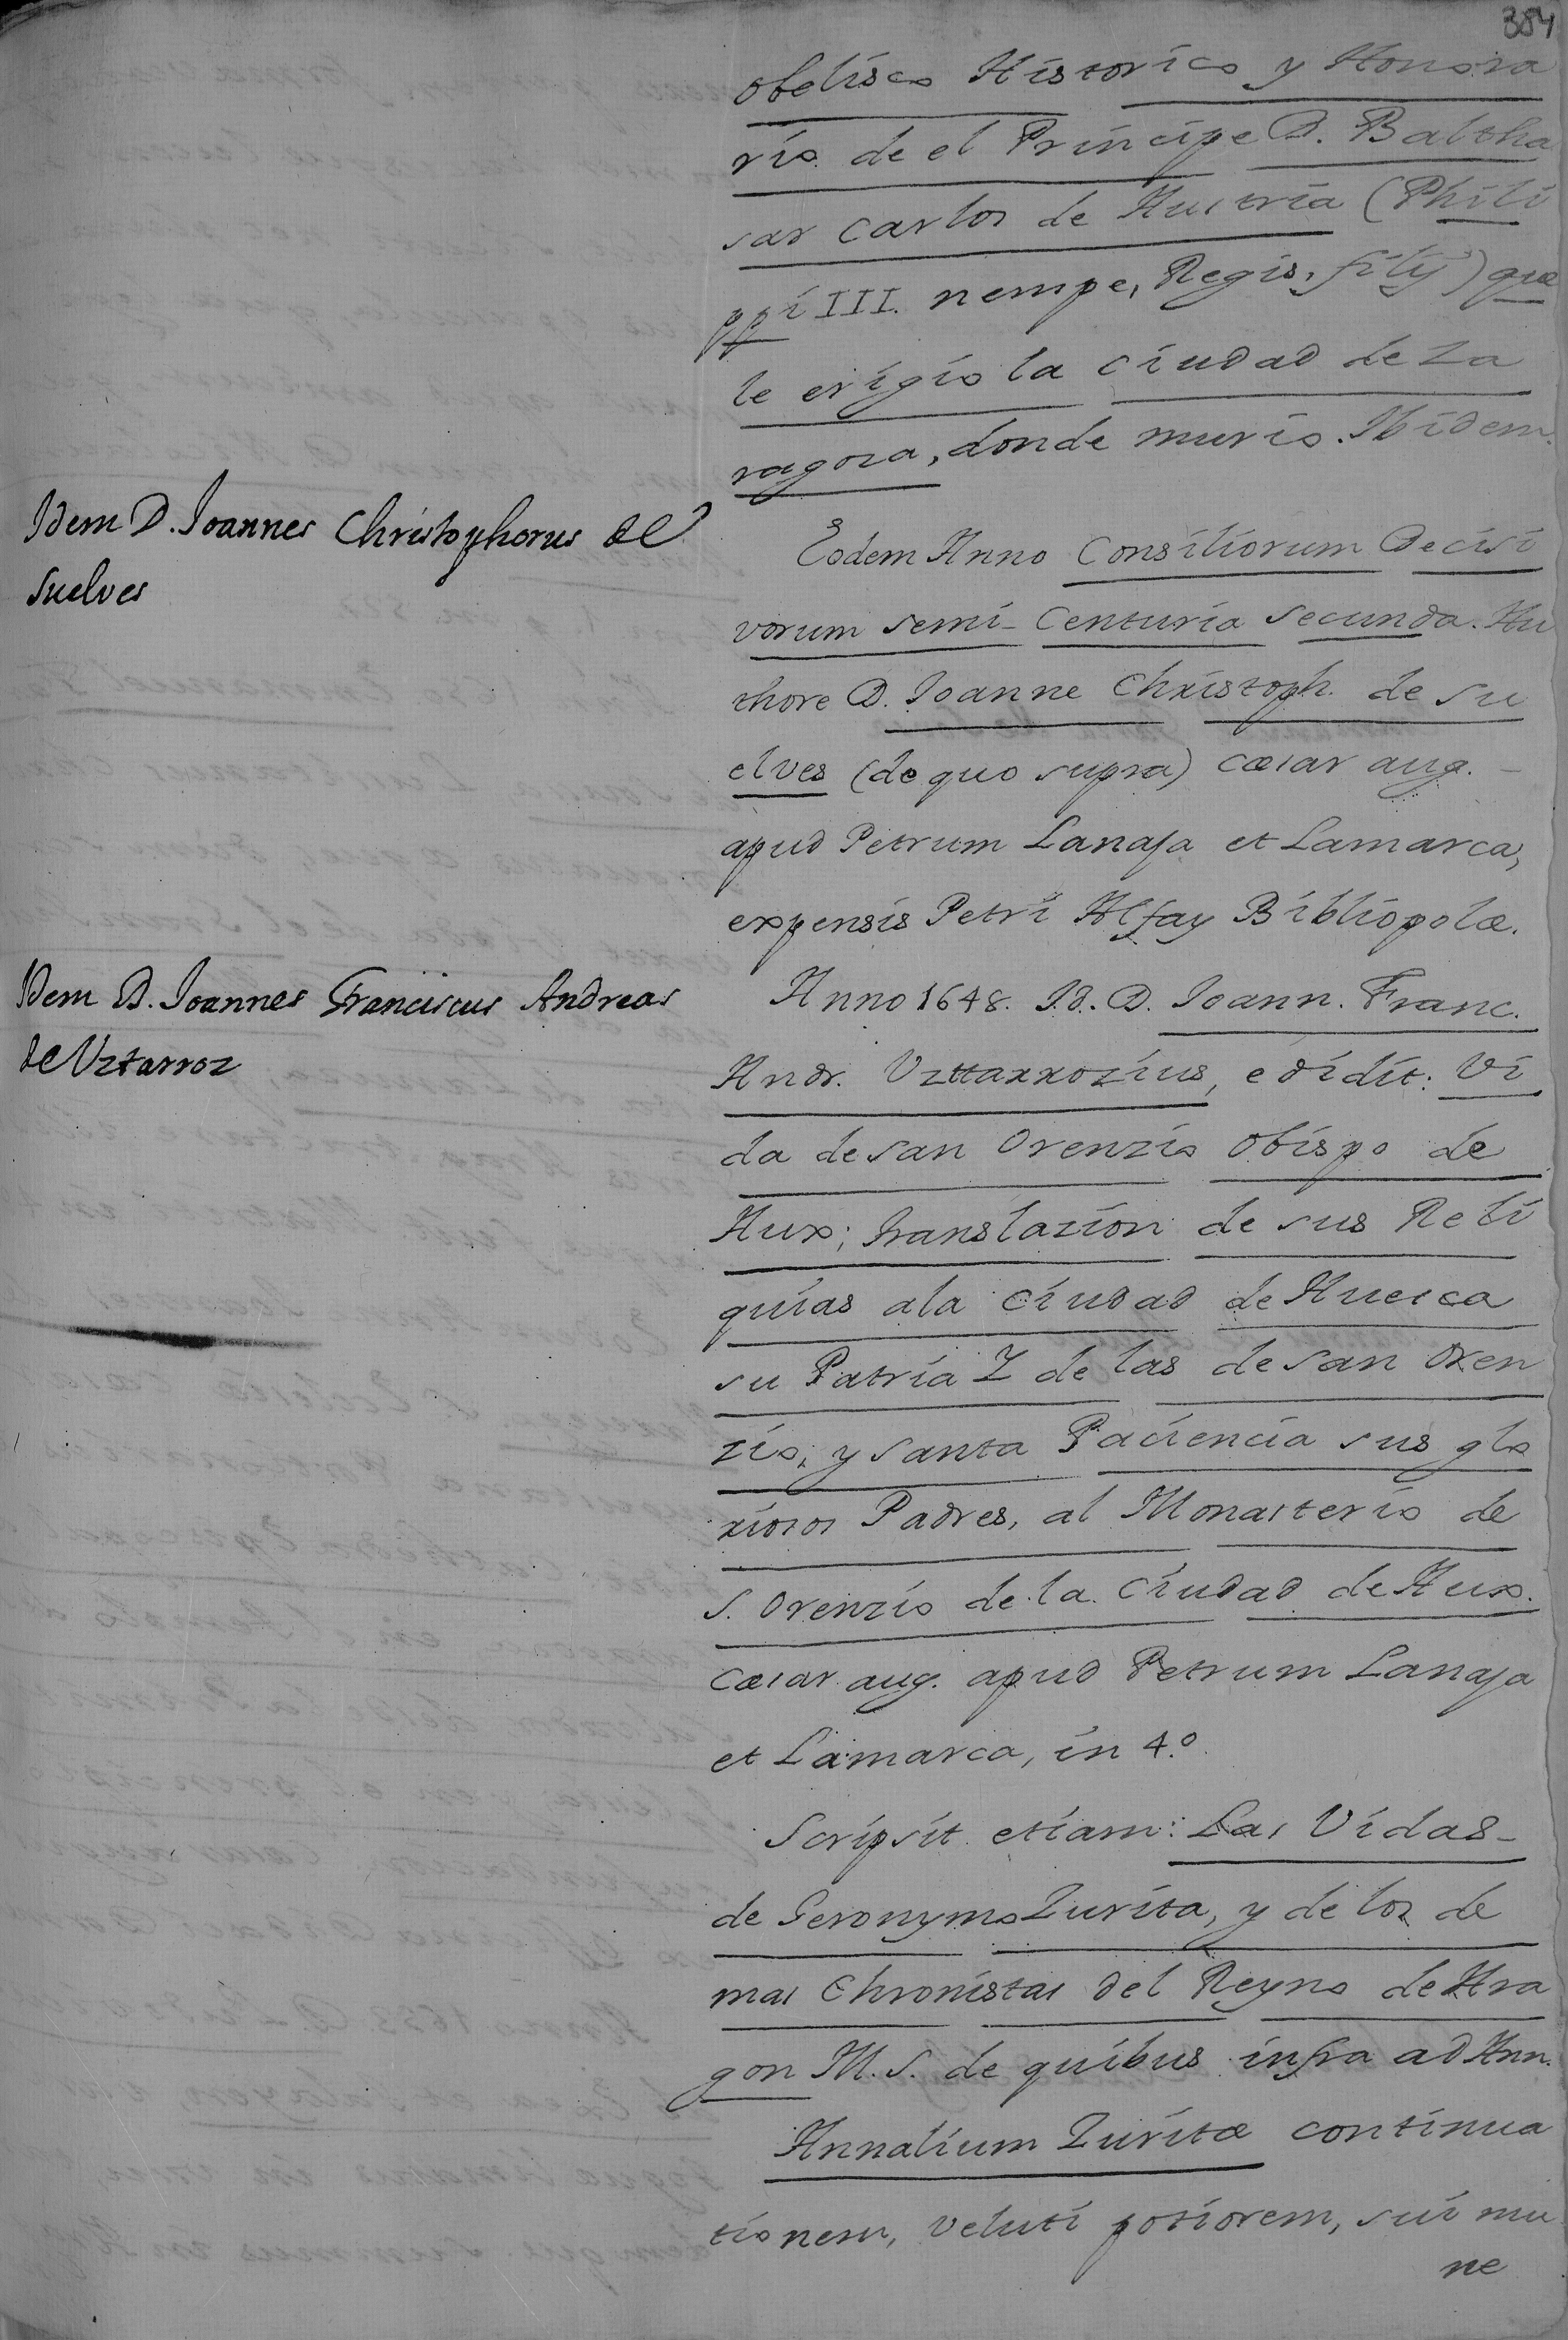 384
obelisco Historico y Honora
rio de el Principe D. Baltha
sar Carlos de Austria (Phili
ppi III. nempe, Regis, filÿ) que
le erigio la Ciudad de Za
ragoza, donde murio. Ibidem.
Idem D. Ioannes Christophorus de
Suelves
Eodem Anno Consiliorum Decisi
vorum semi-Centuria secunda. Au
thore D. Ioanne Christoph. de Su
elves (de quo supra) Cæsar aug. -
apud Petrum Lanaja et Lamarca,
expensis Petri Alfay Bibliopolæ.
Idem D. Ioannes Franciscus Andreas
de Uztarroz
Anno 1648. Id. D. Ioann. Franc.
Andr. Uzttarrozius, edidit: Vi
da de san Orenzio obispo de
Aux; translazion de sus Reli
quias a la Ciudad de Huesca
su Patria I de las de san Oren
zio; y santa Paciencia sus glo
riosos Padres, al Monasterio de
S. Orenzio de la Ciudad de Aux.
Cæsar aug. apud Petrum Lanaja
et Lamarca, in 4.º
Scripsit etiam: Las Vidas-
de Geronymo Zurita, y de los de
mas Chronistas del Reyno de Ara
gon M.S. de quibus infra ad Ann.
Annalium Zuritæ continua
tionem, veluti potiorem, sui mu
ne